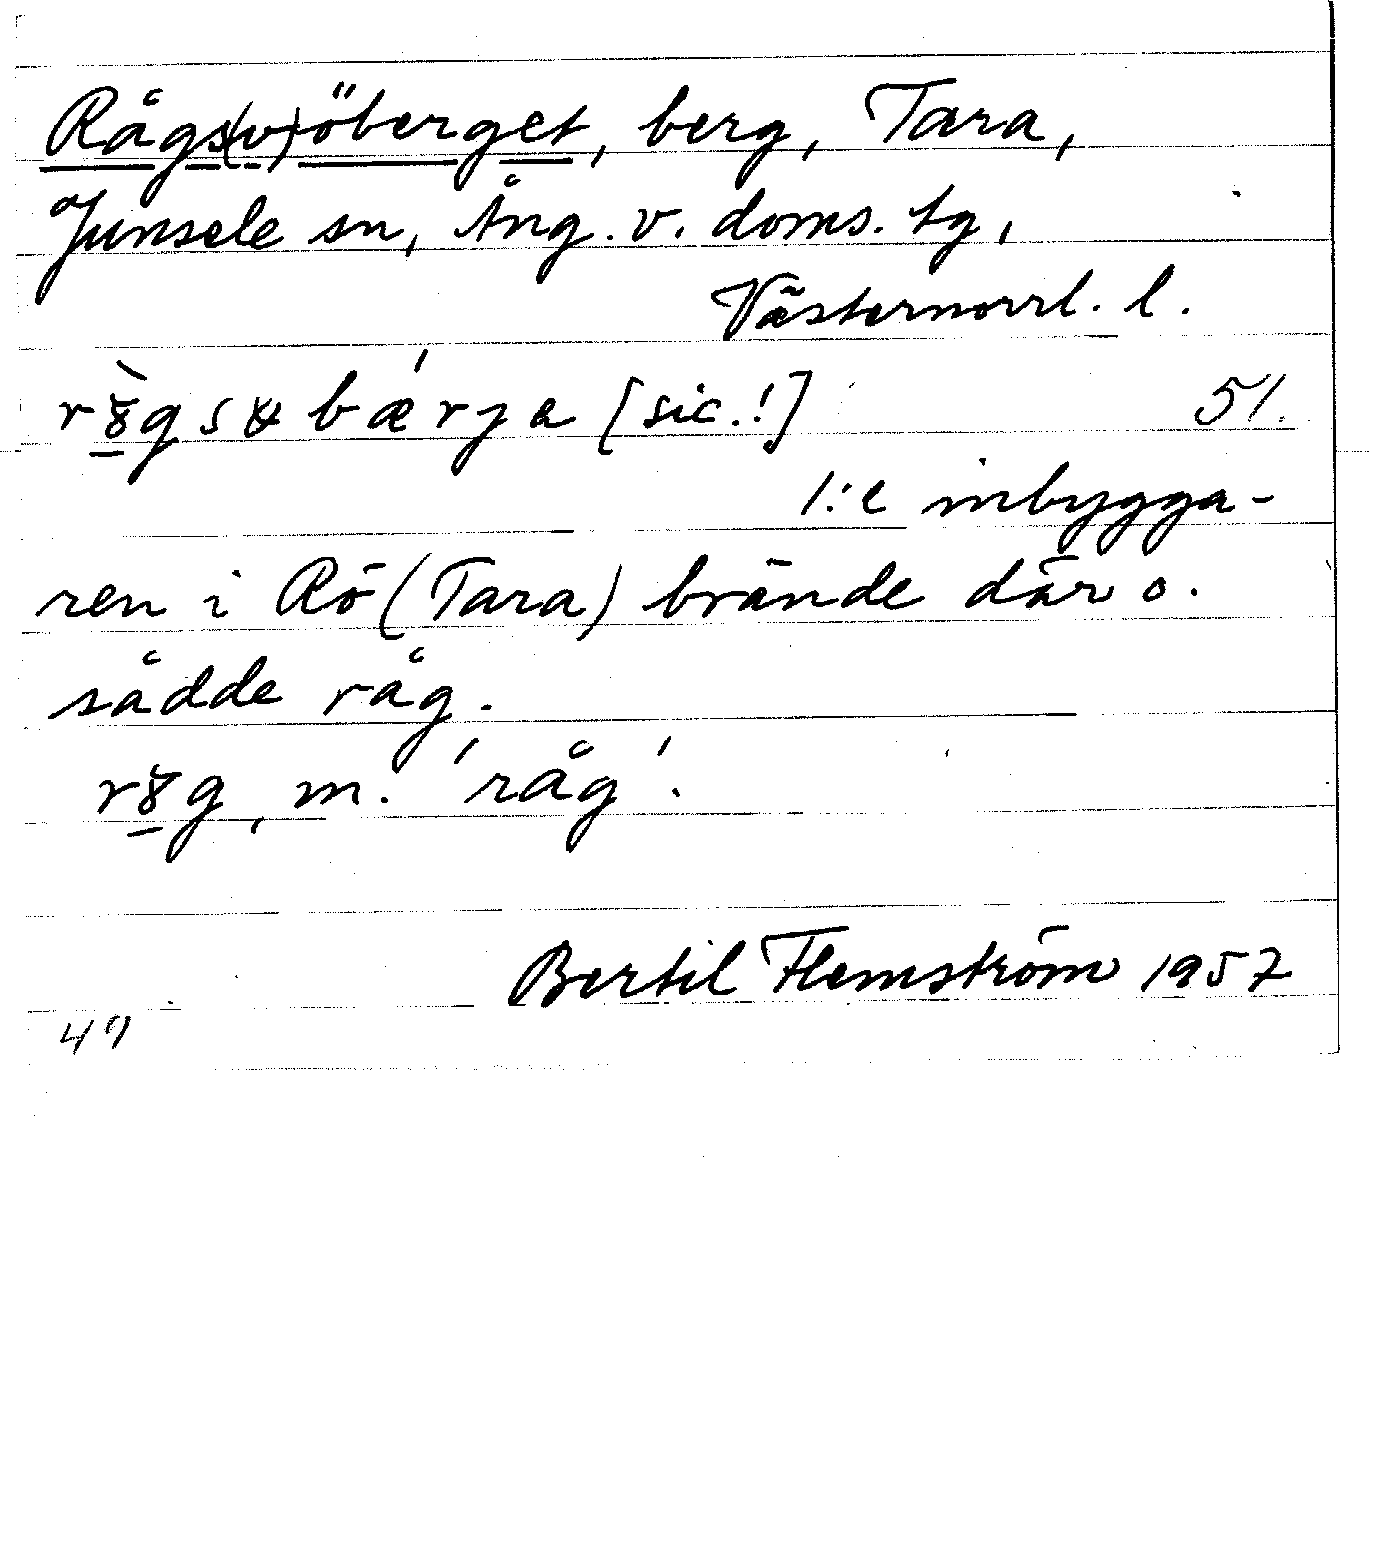 Rågs(v)öberget, berg, Tara,
Junsele sn, Ång. v. doms. tg,
Västernorrl. l.
[sic.!] 51.
1:e inbygga-
ren i Rö (Tara) brände där o.
sådde råg.
m. 'råg'.
Bertil Flemström 1957
49